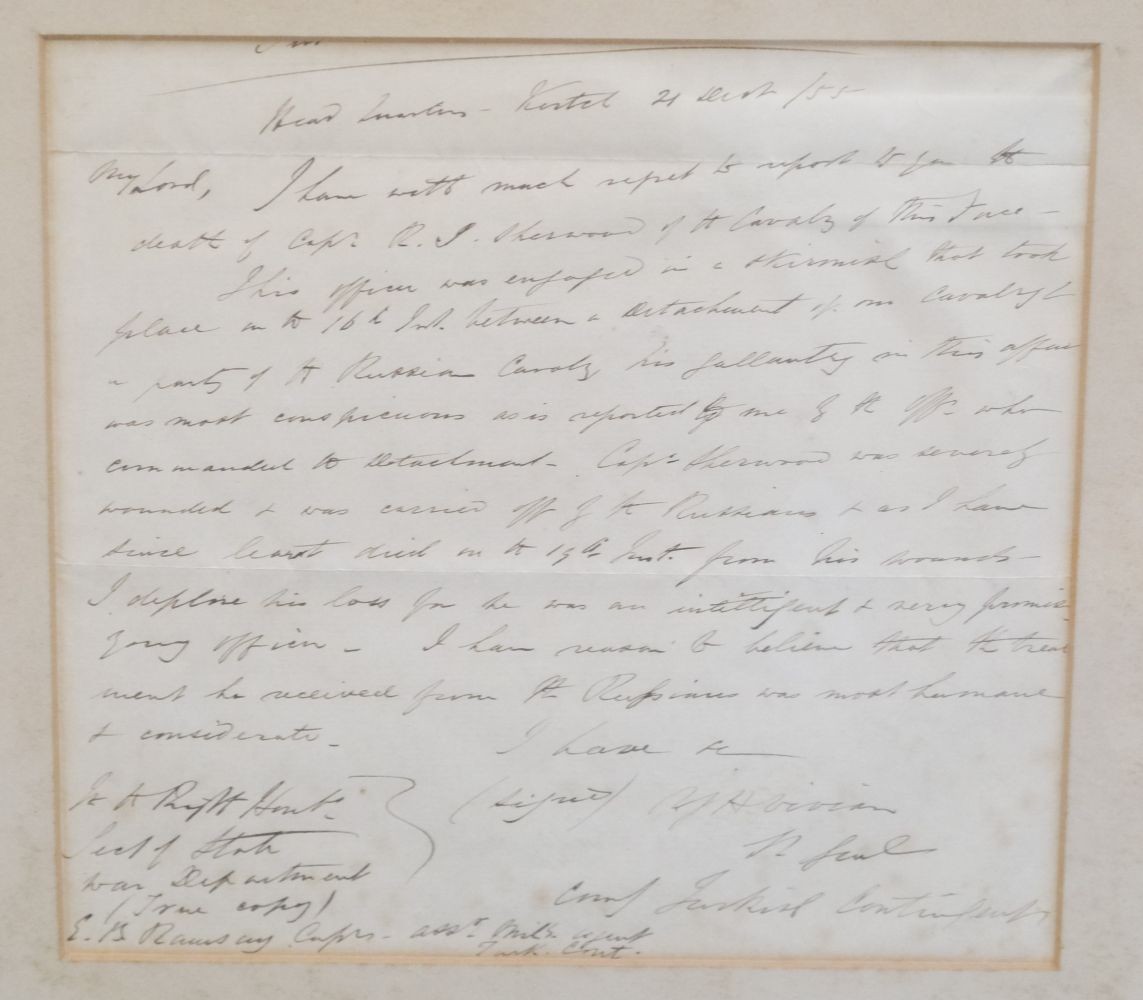 Head Quarters - Kertch 21 Decr /55
My Lord, I have with much regret to report to you the
death of Capt. R. I. Sherwood of the Cavalry of this Force -
This officer was engaged in a skirmish that took
place on the 16th Inst. between a Detachment of our Cavalry &
a party of the Russian Cavalry his gallantry in this affair
was most conspicuous as is reported to me by the Offr. who
commanded the Detachment - Capt. Sherwood was severely
wounded & was carried off by the Russians & as I have
since learnt died on the 19th Inst. from his wounds -
I deplore his loss for he was an intelligent & very promis
young officer - I have reason to believe that the treat
ment he received from the Russians was most humane
& considerate -
I have &c
(signed) Vivian
Lt. Genl
Comg Turkish Contingent
To the Right Honble.
Secy of State
War Department
(True copy)
E. B Ramsay Captn - Asst. Mily. Agent
Turk. Cont.